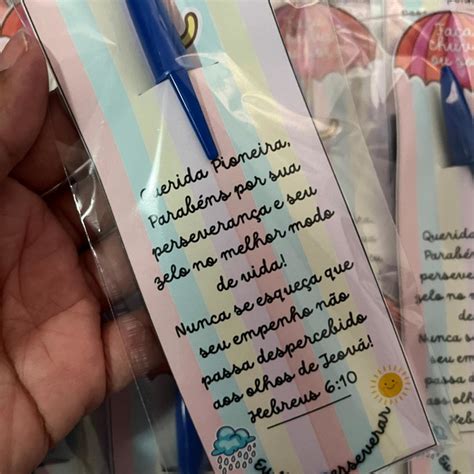 Querida Pioneira,
Parabéns por sua
perseverança e seu
zelo no melhor modo
de vida!
Nunca se esqueça que
seu empenho não
passa despercebido
aos olhos de Jeová!
Hebreus 6:10
perseverar
Faça
chuva
ou so
Querida
Parabé
persever
zelo no
Nunca
seu em
passa
aos o